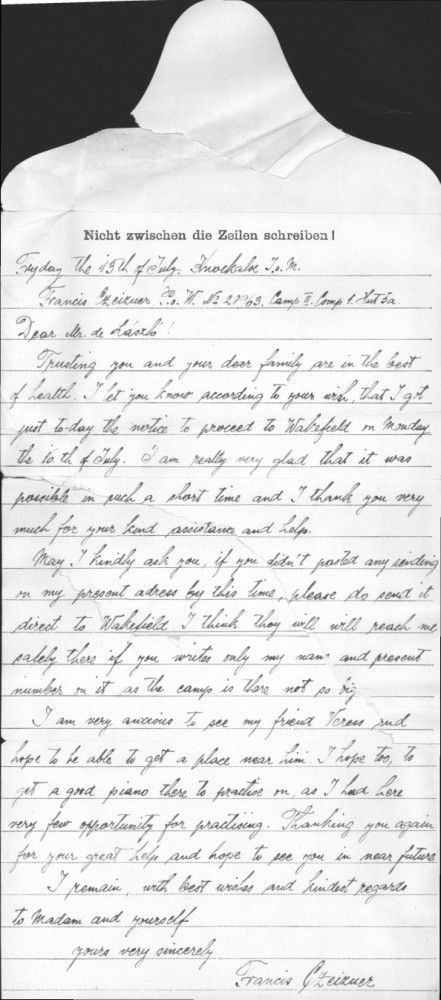 Nicht zwischen die Zeilen schreiben!
Fryday the 15th of July. Knockaloe I.o.M.
Francis Czeizner P.o.W. No 28963. Camp II. Comp 1. Hut 5a
Dear Mr. de László!
Trusting you and your dear family are in the best
of health. I let you know according to your wish, that I got
just to-day the notice to proceed to Wakefield on Monday
the 10.th of July. I am really very glad that it was
possible in such a short time and I thank you very
much for your kind assistance and help.
May I kindly ask you, if you didn't posted any sending
on my present adress by this time, please do send it
direct to Wakefield I think they will will reach me
safely there if you writes only my name and present
number on it as the camp is there not so big
I am very anxious to see my friend Veress and
hope to be able to get a place near him. I hope too, to
get a good piano there to practise on, as I had here
very few opportunity for practising. Thanking you again
for your great help and hope to see you in near future
I remain, with best wishes and kindest regards
to Madam and yourself
yours very sincerely
Francis Czeizner